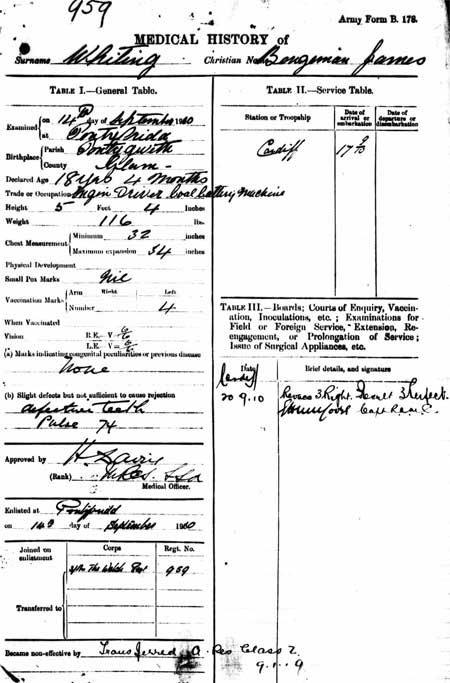 959
Army Form B. 178.
MEDICAL HISTORY of
Surname Whiting Christian Name Bengeman James
TABLE I.—General Table.
Examined on 14th day of September 1910
at Pontypridd
Birthplace Parish
County Glam-
Declared Age 18 yrs 4 months
Trade or Occupation Engin Driver Coal Cuttery Machine
Height 5 Feet 4 Inches
Weight 116 lbs.
Chest Measurement Minimum 32 inches
Maximum expansion 34 inches
Physical Development
Small Pox Marks Nil
Vaccination Marks Arm Right Left
Number 4
When Vaccinated
Vision R.E.—V=
L.E.—V=
(a) Marks indicating congenital peculiarities or previous disease
None
(b) Slight defects but not sufficient to cause rejection
defective teeth
Pulse 74
Approved by
(Rank)
Medical Officer.
Enlisted at Pontypridd
on 14th day of September 1910
Joined on enlistment
Corps
Regt. No.
The Welch Regt
959
Transferred to
Became non-effective by Transferred A. Res Class 2
9
TABLE II.—Service Table.
Station or Troopship
Date of arrival or embarkation
Date of departure or disembarkation
Cardiff 17
TABLE III.—Boards; Courts of Enquiry, Vaccin-
ation, Inoculations, etc.; Examinations for
Field or Foreign Service, Extension, Re-
engagement, or Prolongation of Service;
Issue of Surgical Appliances, etc.
Date
Brief details, and signature
Cardiff
20 9.10 3 Right. 3 Perfect.
Capt